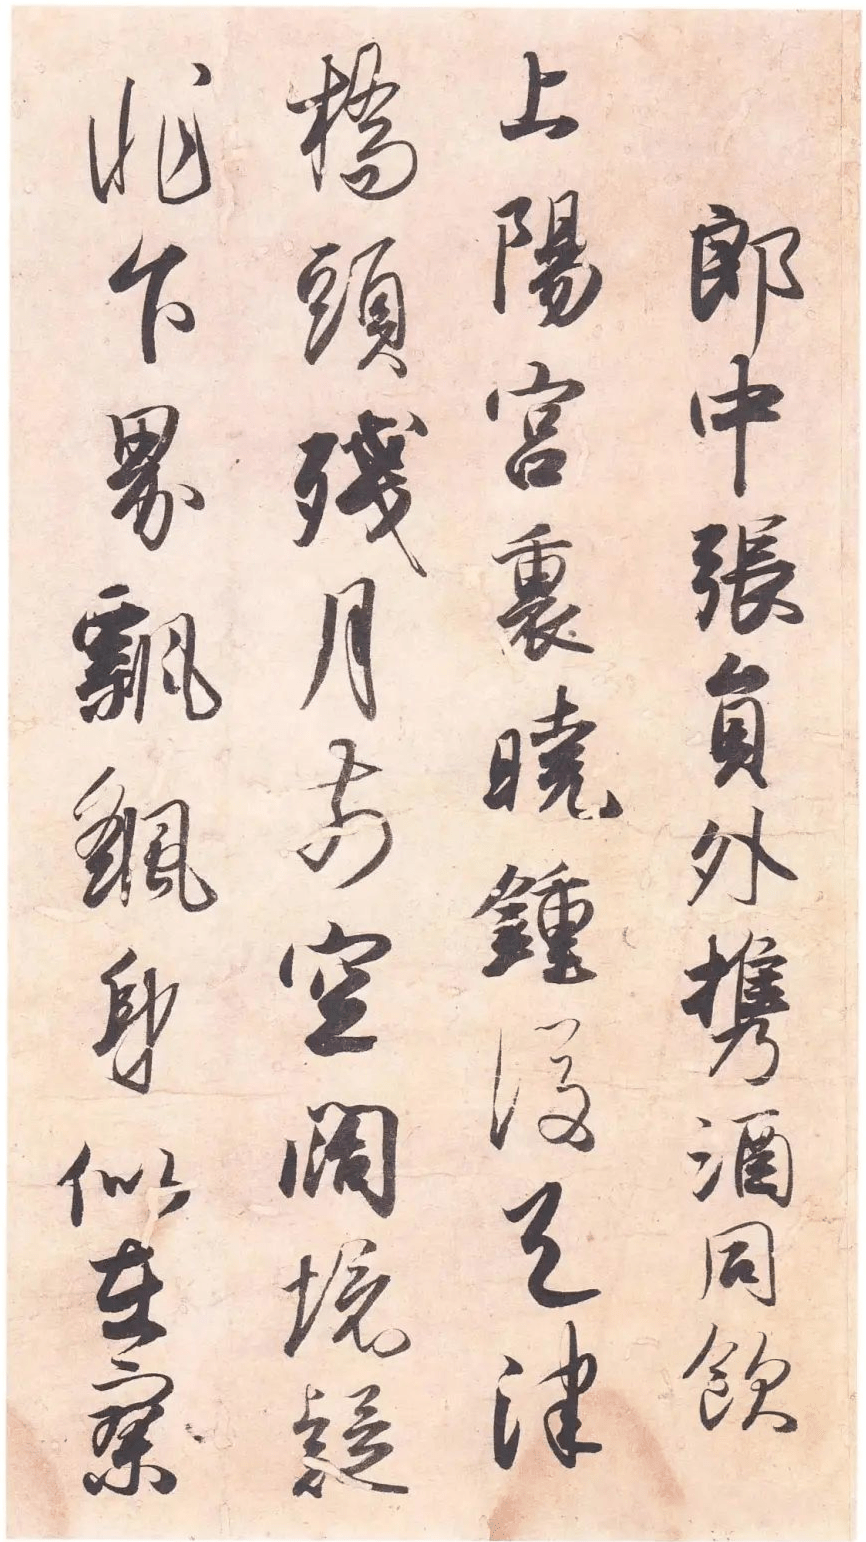 郎中張員外攜酒同飲
上陽宮裏曉鍾後天津
橋頭殘月前空闊境疑
非下界飄飖身似在寥